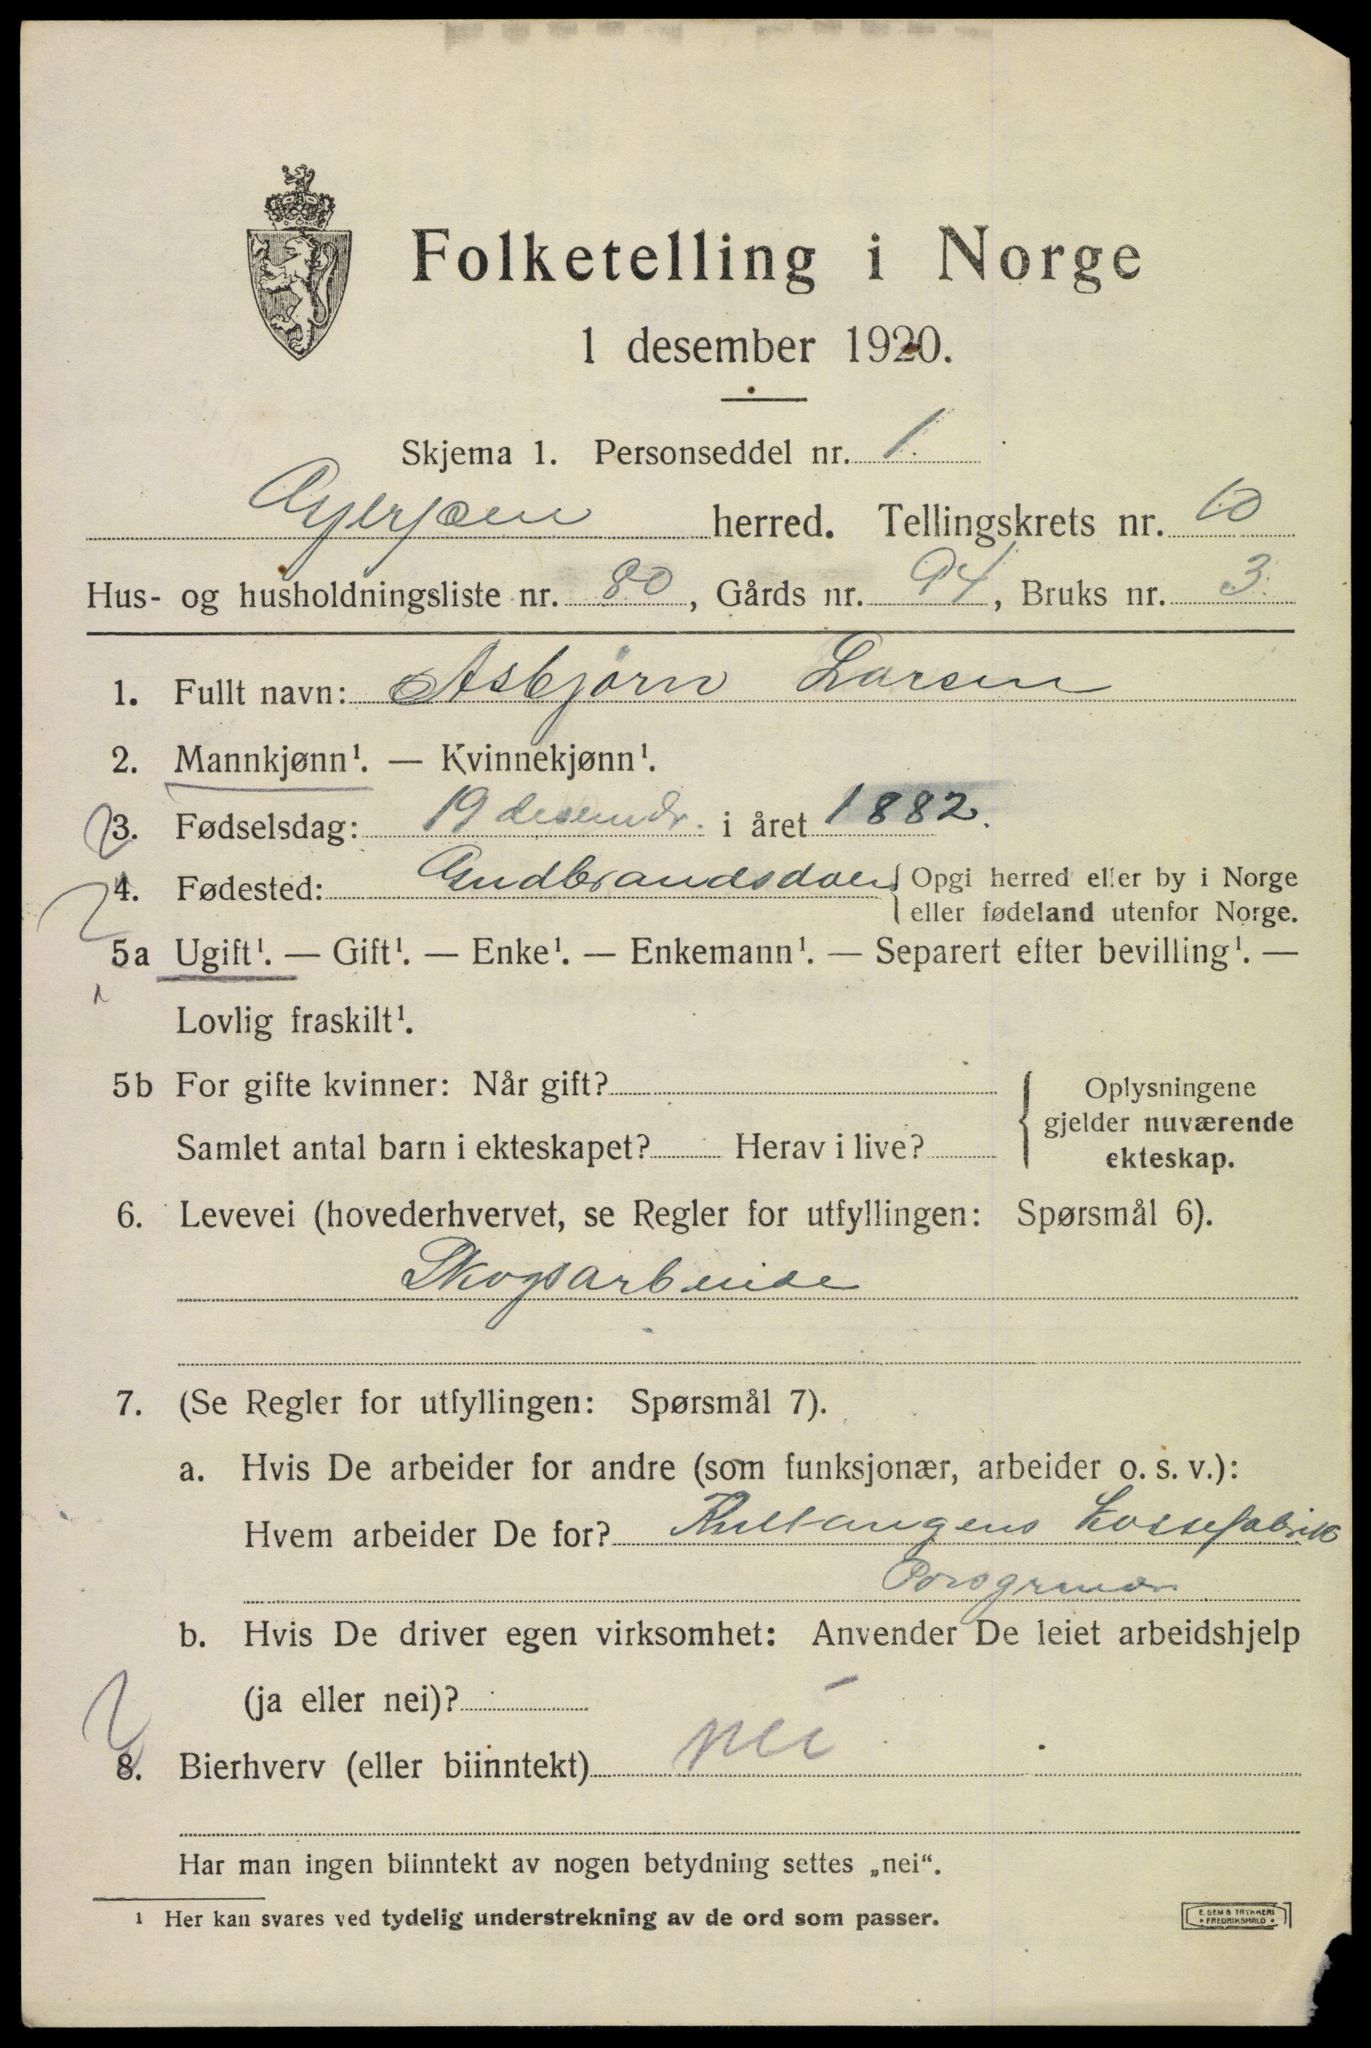 Folketelling i Norge
1 desember 1920.
Skjema 1. Personseddel nr. 1.
Gjerpen herred. Tellingskrets nr. 10
Hus- og husholdningsliste nr. 80, Gårds nr. 94, Bruks nr. 3.
1. Fullt navn: Asbjørn Larsen
2. Mannkjønn¹. — Kvinnekjønn¹.
3. Fødselsdag: 19 desembr. i året 1882.
4. Fødested: Gudbrandsdalen { Opgi herred eller by i Norge
eller fødeland utenfor Norge.
5a Ugift¹. — Gift¹. — Enke¹. — Enkemann¹. — Separert efter bevilling¹. —
Lovlig fraskilt¹.
5b For gifte kvinner: Når gift?
Samlet antal barn i ekteskapet? Herav i live?
{ Oplysningene
gjelder nuværende
ekteskap.
6. Levevei (hovederhvervet, se Regler for utfyllingen: Spørsmål 6).
Skogsarbeide
7. (Se Regler for utfyllingen: Spørsmål 7).
a. Hvis De arbeider for andre (som funksjonær, arbeider o. s. v.):
Hvem arbeider De for?
Porsgrunn
b. Hvis De driver egen virksomhet: Anvender De leiet arbeidshjelp
(ja eller nei)?
8. Bierhverv (eller biinntekt) nei
Har man ingen biinntekt av nogen betydning settes „nei“.
¹ Her kan svares ved tydelig understrekning av de ord som passer.
E. SEM S TRYKKERI
FREDRIKSHALD